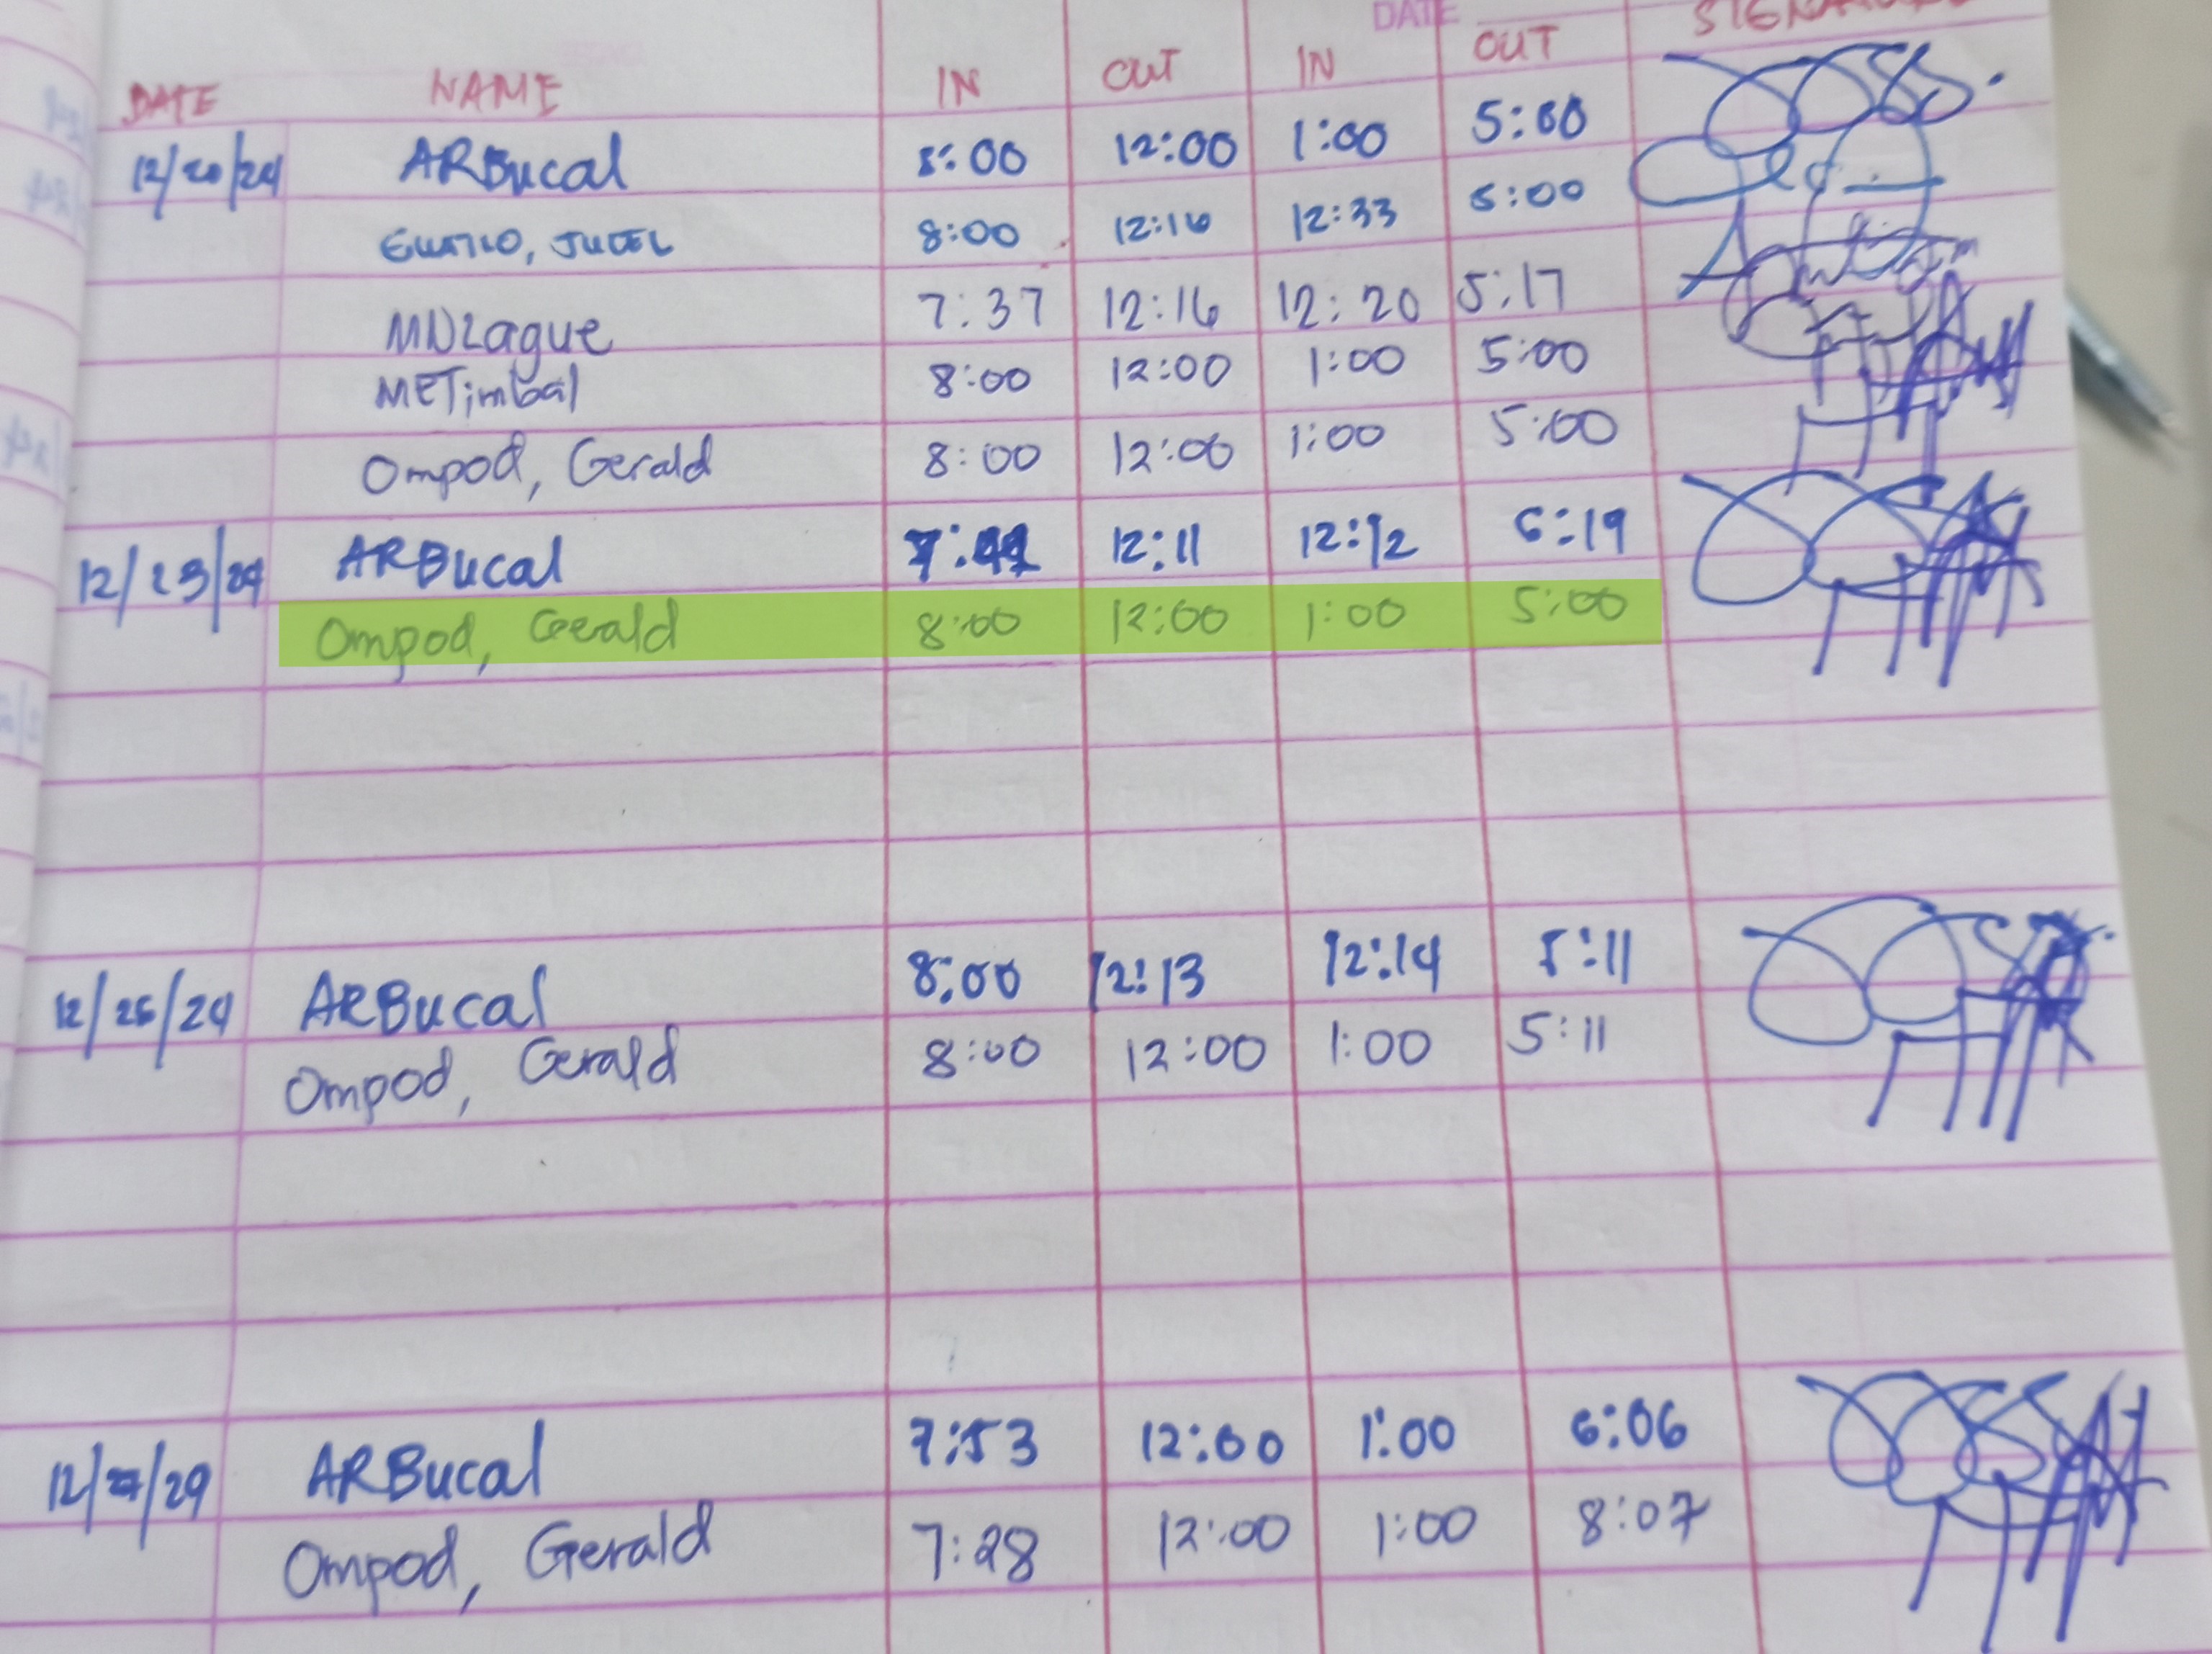 DATE
DATE NAME IN OUT IN OUT
12/20/24 ARBucal 8:00 12:00 1:00 5:00
8:00 12:16 12:33 5:00
MNLague 7:37 12:16 12:20 5:17
METimbal 8:00 12:00 1:00 5:00
Ompod, Gerald 8:00 12:00 1:00 5:00
12/23/24 ARBucal 12:11 12:12 6:19
Ompod, Gerald 8:00 12:00 1:00 5:00
12/26/24 ARBucal 8:00 12:13 12:14 5:11
Ompod, Gerald 8:00 12:00 1:00 5:11
ARBucal 7:53 12:00 1:00 6:06
Ompod, Gerald 7:28 12:00 1:00 8:07